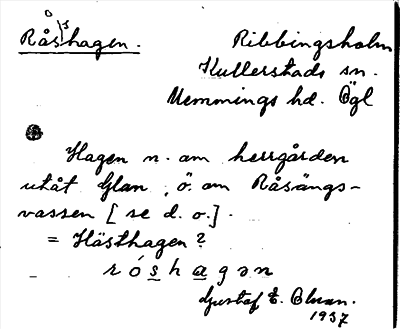 Råshagen.
Ribbingsholm
Kullerstads sn.
Memmings hd. Ögl
Hagen n. om herrgården
utåt Glan, ö. om Råsängs-
vassen [se d. o.].
= Hästhagen?
róshagən
Gustaf E.
1937